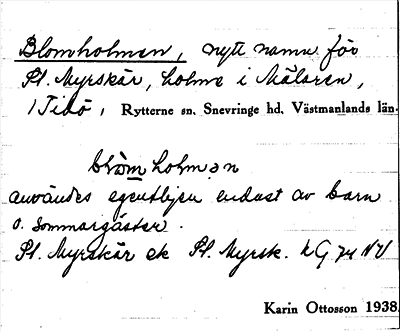 Blomholmen, nytt namn för
Pl. Myrskär, holme i Mälaren,
/Tidö, Rytterne sn. Snevringe hd. Västmanlands län.
blòmholmən
användes egentligen endast av barn
o. sommargäster.
Pl. Myrskär ek Pl. Myrsk. kG 74 NV
Karin Ottosson 1938.